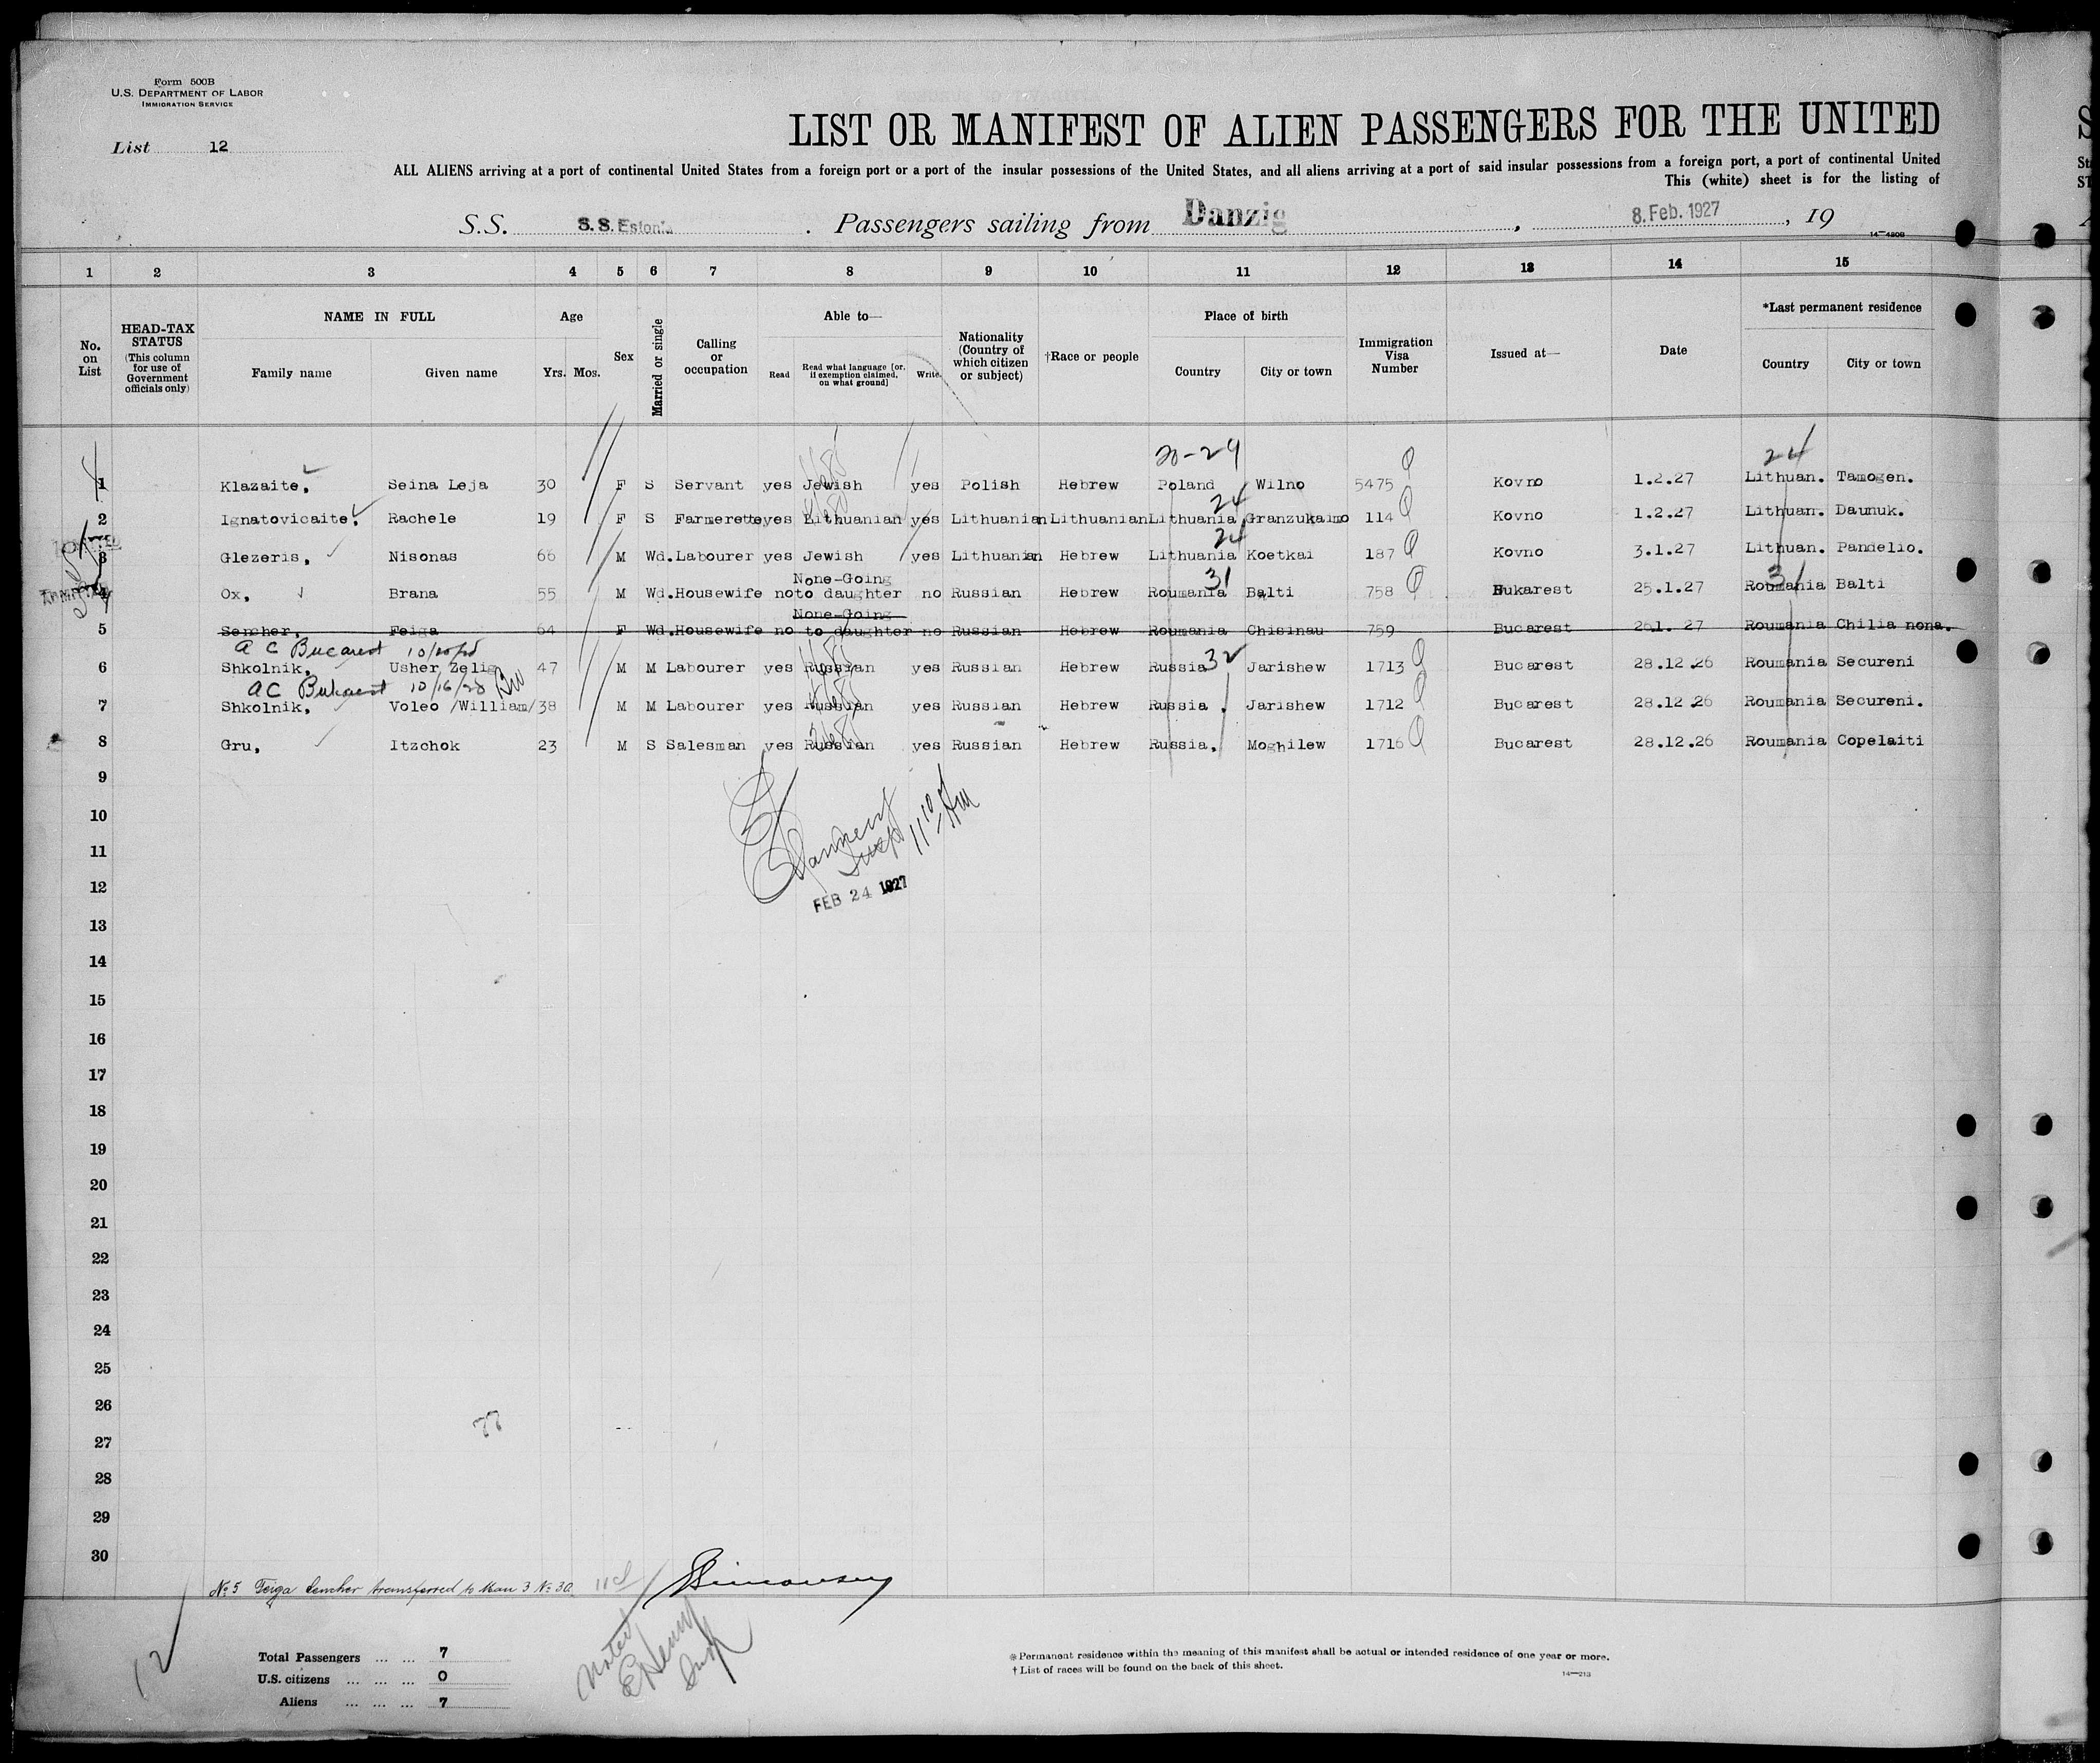 Form 500B
U.S. DEPARTMENT OF LABOR
IMMIGRATION SERVICE
List 12
LIST OR MANIFEST OF ALIEN PASSENGERS FOR THE UNITED
ALL ALIENS arriving at a port of continental United States from a foreign port or a port of the insular possessions of the United States, and all aliens arriving at a port of said insular possessions from a foreign port, a port of continental United
This (white) sheet is for the listing of
S.S. S.S. Estonia. Passengers sailing from Danzig, 8. Feb. 1927, 19
14—4808
1 2 3 4 5 6 7 8 9 10 11 12 13 14 15
No. on List
HEAD-TAX STATUS (This column for use of Government officials only)
NAME IN FULL
Family name Given name
Age
Yrs. Mos.
Sex
Married or single
Calling or occupation
Able to—
Read Read what language [or, if exemption claimed, on what ground] Write
Nationality (Country of which citizen or subject)
†Race or people
Place of birth
Country City or town
Immigration Visa Number
Issued at—
Date
*Last permanent residence
Country City or town
20-29 24
1 Klazaite, Seina Leja 30 F S Servant yes Jewish yes Polish Hebrew Poland Wilno 5475 Kovno 1.2.27 Lithuan. Tamogen.
24
2 Ignatovicaite, Rachele 19 F S Farmerette yes Lithuanian yes Lithuanian Lithuanian Lithuania Granzukaimo 114 Kovno 1.2.27 Lithuan. Daunuk.
24
3 Glezeris, Nisonas 66 M Wd. Labourer yes Jewish yes Lithuanian Hebrew Lithuania Koetkai 187 Kovno 3.1.27 Lithuan. Pandelio.
None-Going 31 31
4 Ox, Brana 55 M Wd. Housewife no to daughter no Russian Hebrew Roumania Balti 758 Bukarest 25.1.27 Roumania Balti
None-Going
5 Sencher, Feiga 64 F Wd. Housewife no to daughter no Russian Hebrew Roumania Chisinau 759 Bucarest 26.1. 27 Roumania Chilia nona.
A C Bucarest
6 Shkolnik, Usher Zelig 47 M M Labourer yes Russian yes Russian Hebrew Russia 32 Jarishew 1713 Bucarest 28.12.26 Roumania Secureni
AC Bukarest 10/16/28
7 Shkolnik, Voleo /William/ 38 M M Labourer yes Russian yes Russian Hebrew Russia. Jarishew 1712 Bucarest 28.12.26 Roumania Secureni.
8 Gru, Itzchok 23 M S Salesman yes Russian yes Russian Hebrew Russia. Moghilew 1716 Bucarest 28.12.26 Roumania Copelaiti
9
10
11
12
FEB 24 1927
13
14
15
16
17
18
19
20
21
22
23
24
25
26
77
27
28
29
30
No 5 Feiga Sencher transferred to Man 3 No 30.
12
Noted
Total Passengers ... ... 7
U.S. citizens ... ... ... 0
Aliens ... ... ... 7
* Permanent residence within the meaning of this manifest shall be actual or intended residence of one year or more.
† List of races will be found on the back of this sheet.
14—213